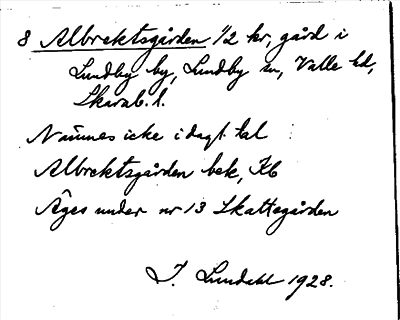 8 Albrektsgården 1/2 kr, gård i
Lundby by, Lundby sn, Valle hd,
Skarab. l.
Nämnes icke i dagl. tal
Albrektsgården bek, Kb
Äges under nr 13 Skattegården
I. Lundahl 1928.